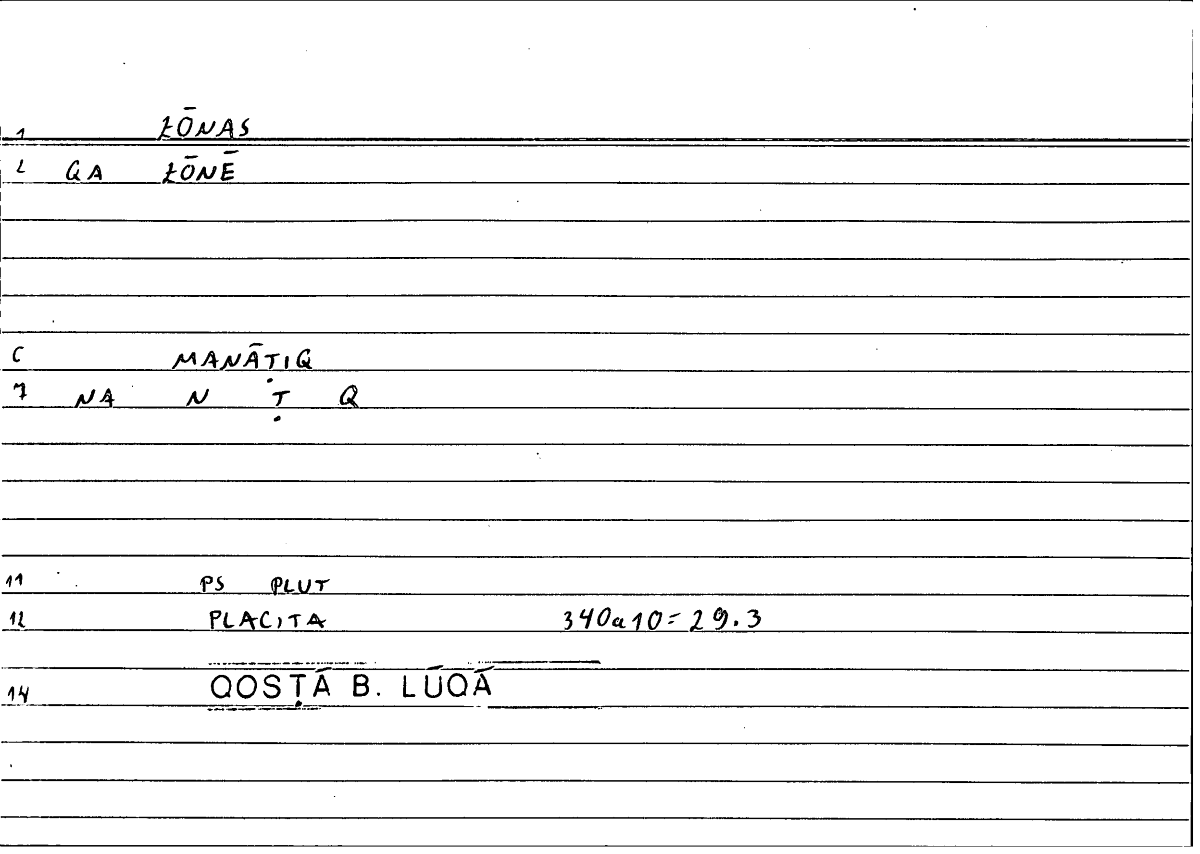 1 ŁŌNAS
2 GA ŁŌNĒ
C MANĀṬIQ
7 NA N Ṭ Q
11 PS PLUT
12 PLACITA 340a10=29.3
14 QOSṬĀ B. LŪQĀ